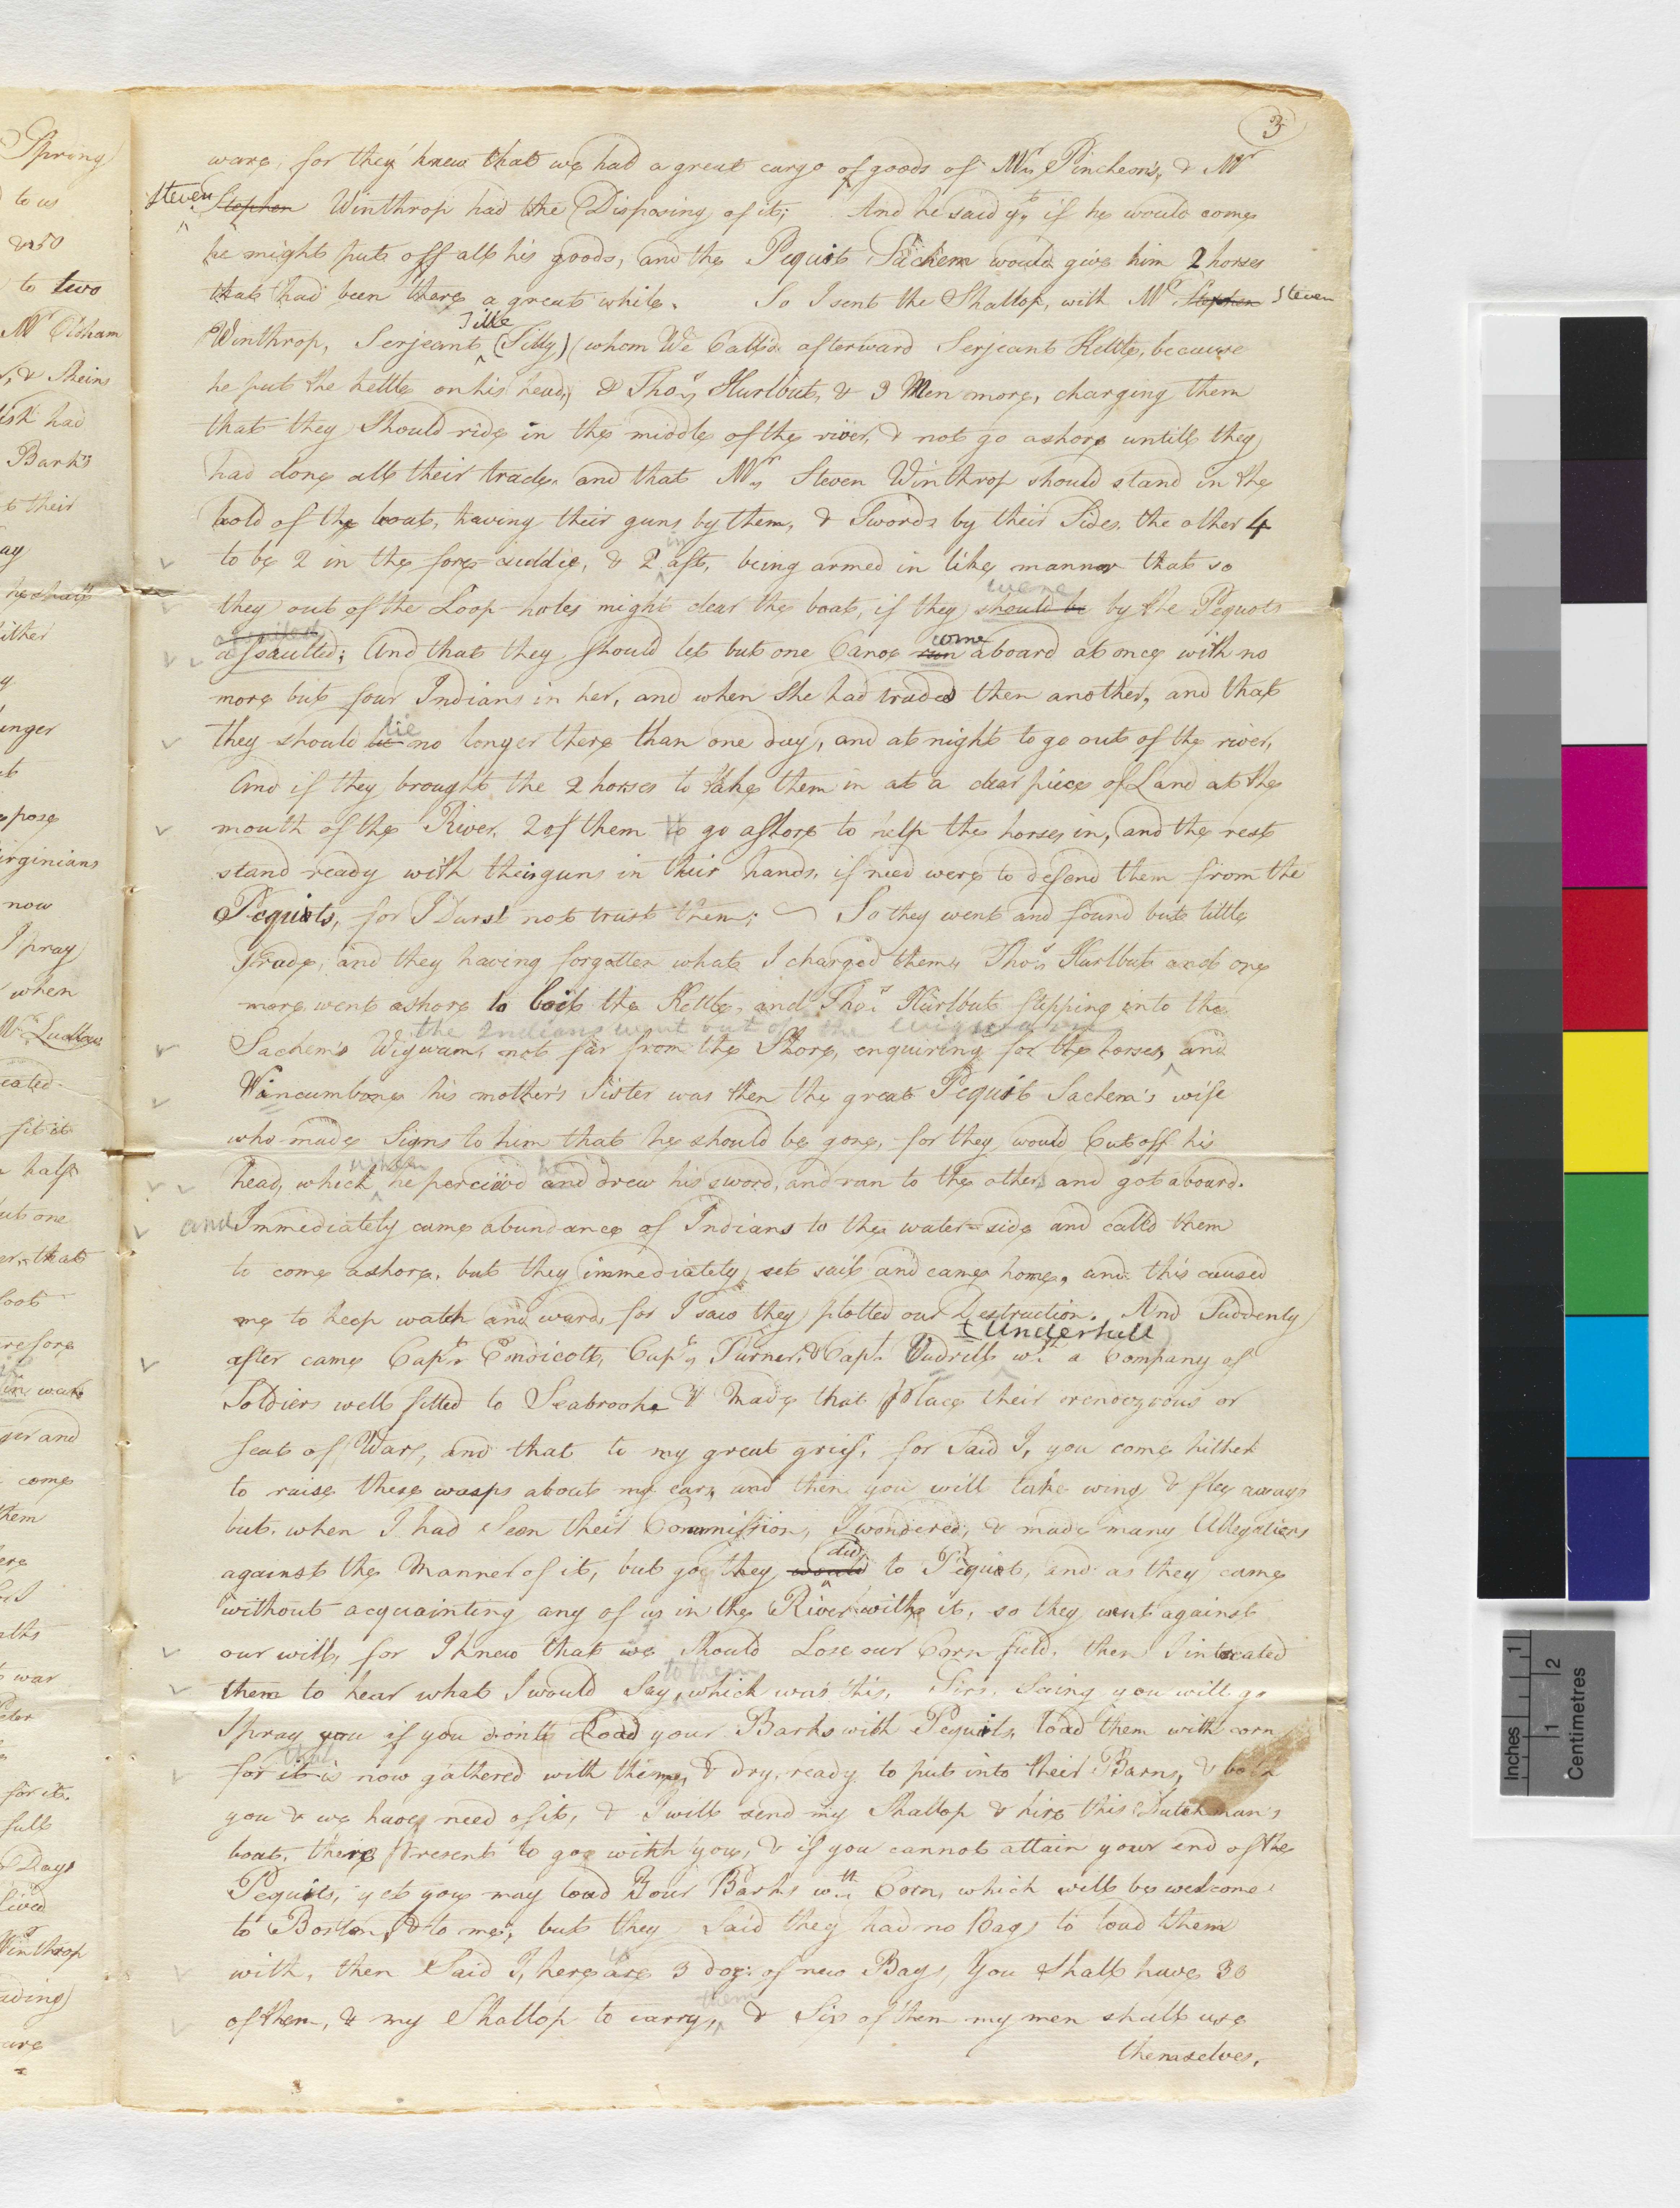 3
ware, for they knew that we had a great cargo of goods of Mr Pincheon's, & Mr
Steven Stephen Winthrop had the Disposing of it; And he said yt if he would come
he might put off all his goods, and the Pequit Sachem would give him 2 horses
that had been there a great while. So I sent the Shallop, with Mr Stephen Steven
Tille
Winthrop, Serjeant (Tilly) (whom We Call'd afterward Serjeant Kettle, because
he put the kettle on his head,) & Thos Hurlbut, & 3 Men more, charging them
that they Should ride in the middle of the river, & not go ashore untill they
had done all their trade, and that Mr Steven Winthrop should stand in the
hold of the boat, having their guns by them, & Swords by their Sides, the other 4
in
to be 2 in the fore-cuddie, & 2 aft, being armed in like manner that so
were
they out of the Loop-holes might clear the boat, if they should be by the Pequots
assaulted
assaulted; And that they should let but one Canoe run come aboard at once with no
more but four Indians in her, and when She had traded then another, and that
lie
they should lie no longer there than one day, and at night to go out of the river,
And if they brought the 2 horses to take them in at a clear piece of Land at the
mouth of the River, 2 of them to go ashore to help the horses in, and the rest
stand ready with their guns in their hands, if need were to defend them from the
Pequits, for I Durst not trust them; So they went and found but little
Trade, and they having forgotten what I charged them, Thos Hurlbut and one
more went ashore to boil the Kettle, and Thos Hurlbut stepping into the
the Indians went out of the wigwam
Sachem's Wigwam, not far from the Shore, enquiring for the horses, and
Wincumbone his mother's Sister was then the great Pequit Sachem's wife
who made Signs to him that he should be gone, for they would Cut off his
when he
head, which he perceived and drew his sword, and ran to the others and got aboard.
and Immediately came abundance of Indians to the water-side and call'd them
to come ashore, but they immediately set sail and came home, and this caused
me to keep watch and ward, for I saw they plotted our Destruction. And Suddenly
Underhull
after came Capt Endicott, Capt Turner, & Capt Undrill wth a Company of
Soldiers well fitted to Seabrooke & made that place their rendezvous or
seat of Warr, and that to my great grief, for Said I, you come hither
to raise these wasps about my ears and then you will take wing & fley away
but when I had Seen their Commission, I wondered, & made many Allegations
did
against the Manner of it, but goe they would to Pequit, and as they came
without acquainting any of us in the River with it, so they went against
our will, for I knew that we should Lose our Corn field, then I intreated
to them
them to hear what I would Say, which was this, Sirs, Seing you will go
I pray you if you don't Load your Barks with Pequits, load them with corn
that
for it is now gathered with them, & dry, ready to put into their Barns, & both
you & we have need of it, & I will send my Shallop & hire this Dutchman's
boat, there present to goe with you, & if you cannot attain your end of the
Pequits, yet you may load your Barks wth Corn, which will be welcome
to Boston, & to me; but they Said they had no Bags to load them
is
with, then Said I, here are 3 doz: of new Bags, you shall have 30
them
of them, & my Shallop to carry, & Six of them my men shall use
themselves,
Inches
Centimetres
1
1
2